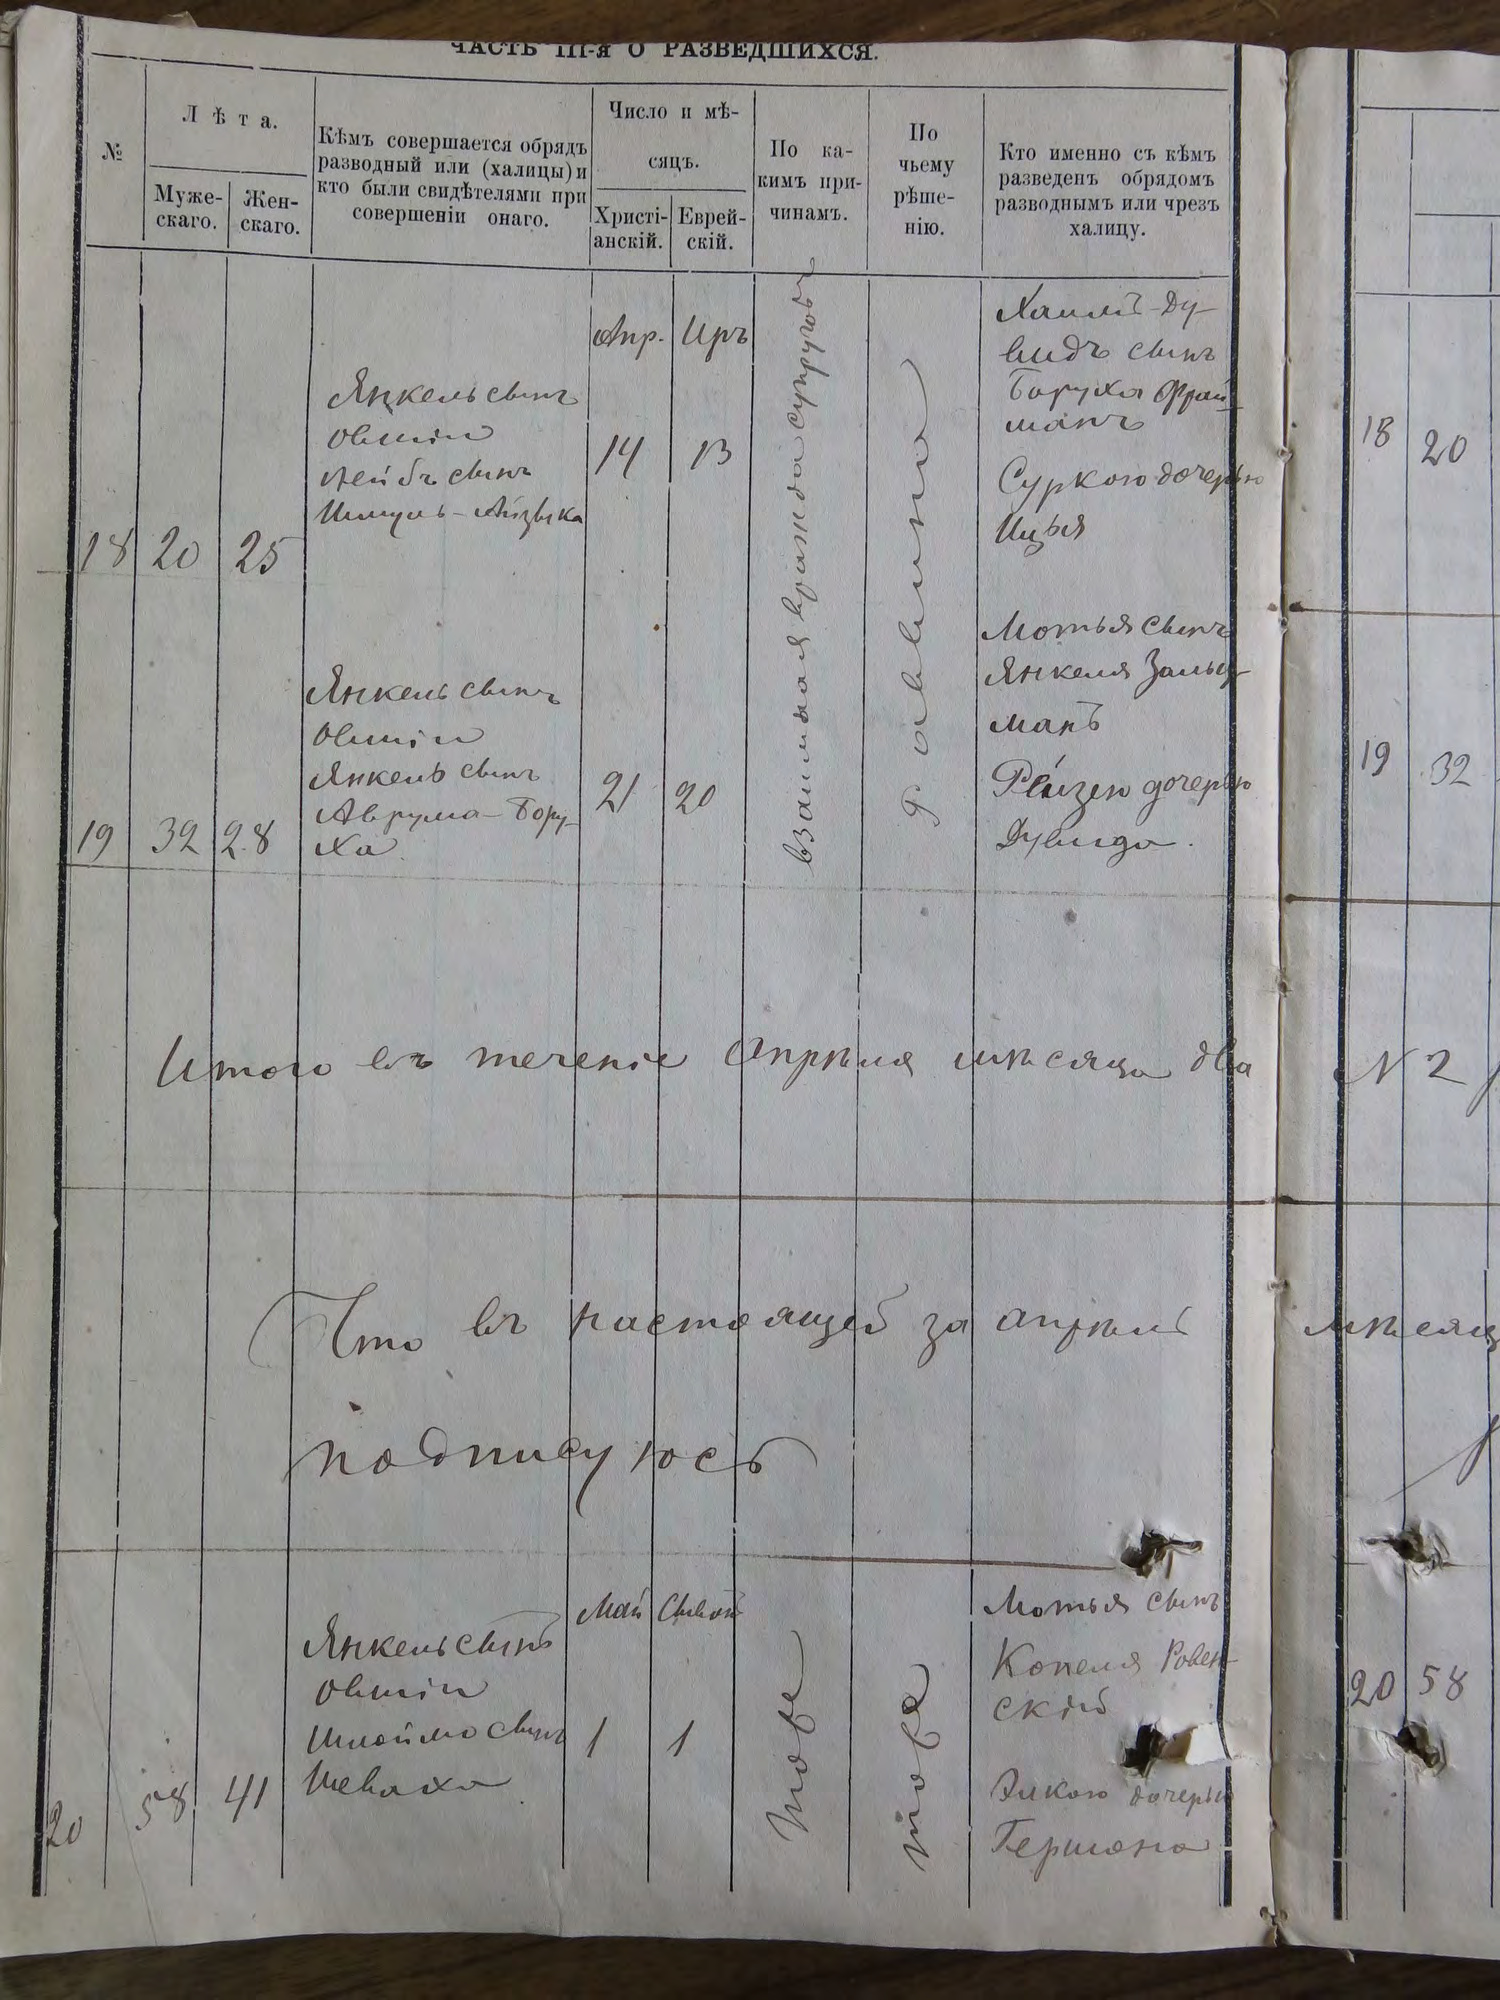 ЧАСТЬ III-я О РАЗВЕДШИХСЯ.
№
Лѣта.
Муже-
скаго.
Жен-
скаго.
Кѣмъ совершается обрядъ
разводный или (халицы) и
кто были свидѣтелями при
совершеніи онаго.
Число и мѣ-
сяцъ.
Христі-
анскій.
Еврей-
скій.
По ка-
кимъ при-
чинамъ.
По
чьему
рѣше-
нію.
Кто именно съ кѣмъ
разведенъ обрядомъ
разводнымъ или чрезъ
халицу.
18
20
25
Янкель сынъ
Овшіи
Лейбъ сынъ
Шмуль-Айзыка
Апр.
14
Иръ
13
взаимная вражда супруговъ
раввина
Хаимъ-Ду-
видъ сынъ
Боруха Фрай-
манъ
Суркою дочерью
Ицья
19
32
28
Янкель сынъ
Овшіи
Янкель сынъ
Аврума-Бору-
ха
21
20
Мотья сынъ
Янкеля Зальц-
манъ
Рейзею дочерью
Дувида.
Итого въ теченіе апрѣля мѣсяца два
Что въ настоящей за апрѣль мѣсяц
подписуюсь
20
58
41
Янкель сынъ
Овшіи
Шлойма сынъ
Шеваха
Май
1
Сывонъ
1
тоже
тоже
Мотья сынъ
Копеля Ровен-
скій
Элькою дочерью
Гершона
18
20
19
32
№ 2
20
58